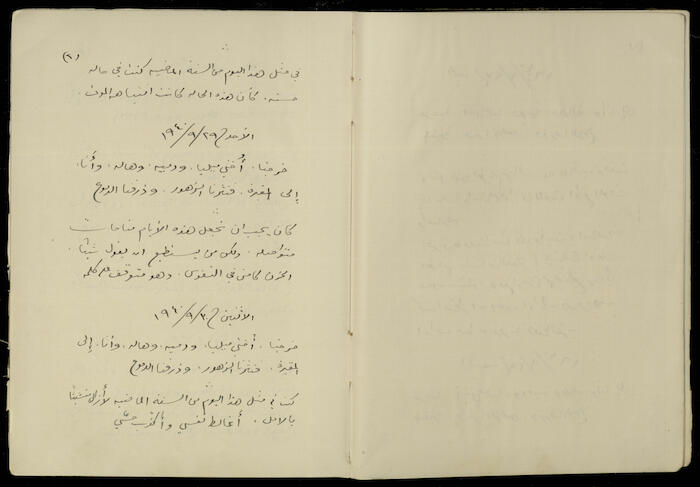 (٢)
في مثل هذا اليوم من السنة الماضيه كنت في حاله
حسنه. كأن هذه الحاله كانت انتباهة الموت.
الأحد ح ٢٩/٩/١٩٤٠
خرجنا. أختي ميليا. ودميه. وهاله. وأنا.
إلى المقبرة. فنثرنا الزهور. وذرفنا الدموع
كان يجب ان نجعل هذه الأيام مناحات
متواصله. ولكن من يستطيع ان يقول شيئا.
الحزن كامن في النفوس. وهو متوقف على كلمه
الاثنين ح ٣٠/٩/١٩٤٠
خرجنا. أختي ميليا. ودميه. وهاله. وأنا. إلى
المقبرة. فنثرنا الزهور. وذرفنا الدموع
كنا في مثل هذا اليوم من السنة الماضيه لا أزال متشبثا
بالامل. أغالط نفسي وأكذب